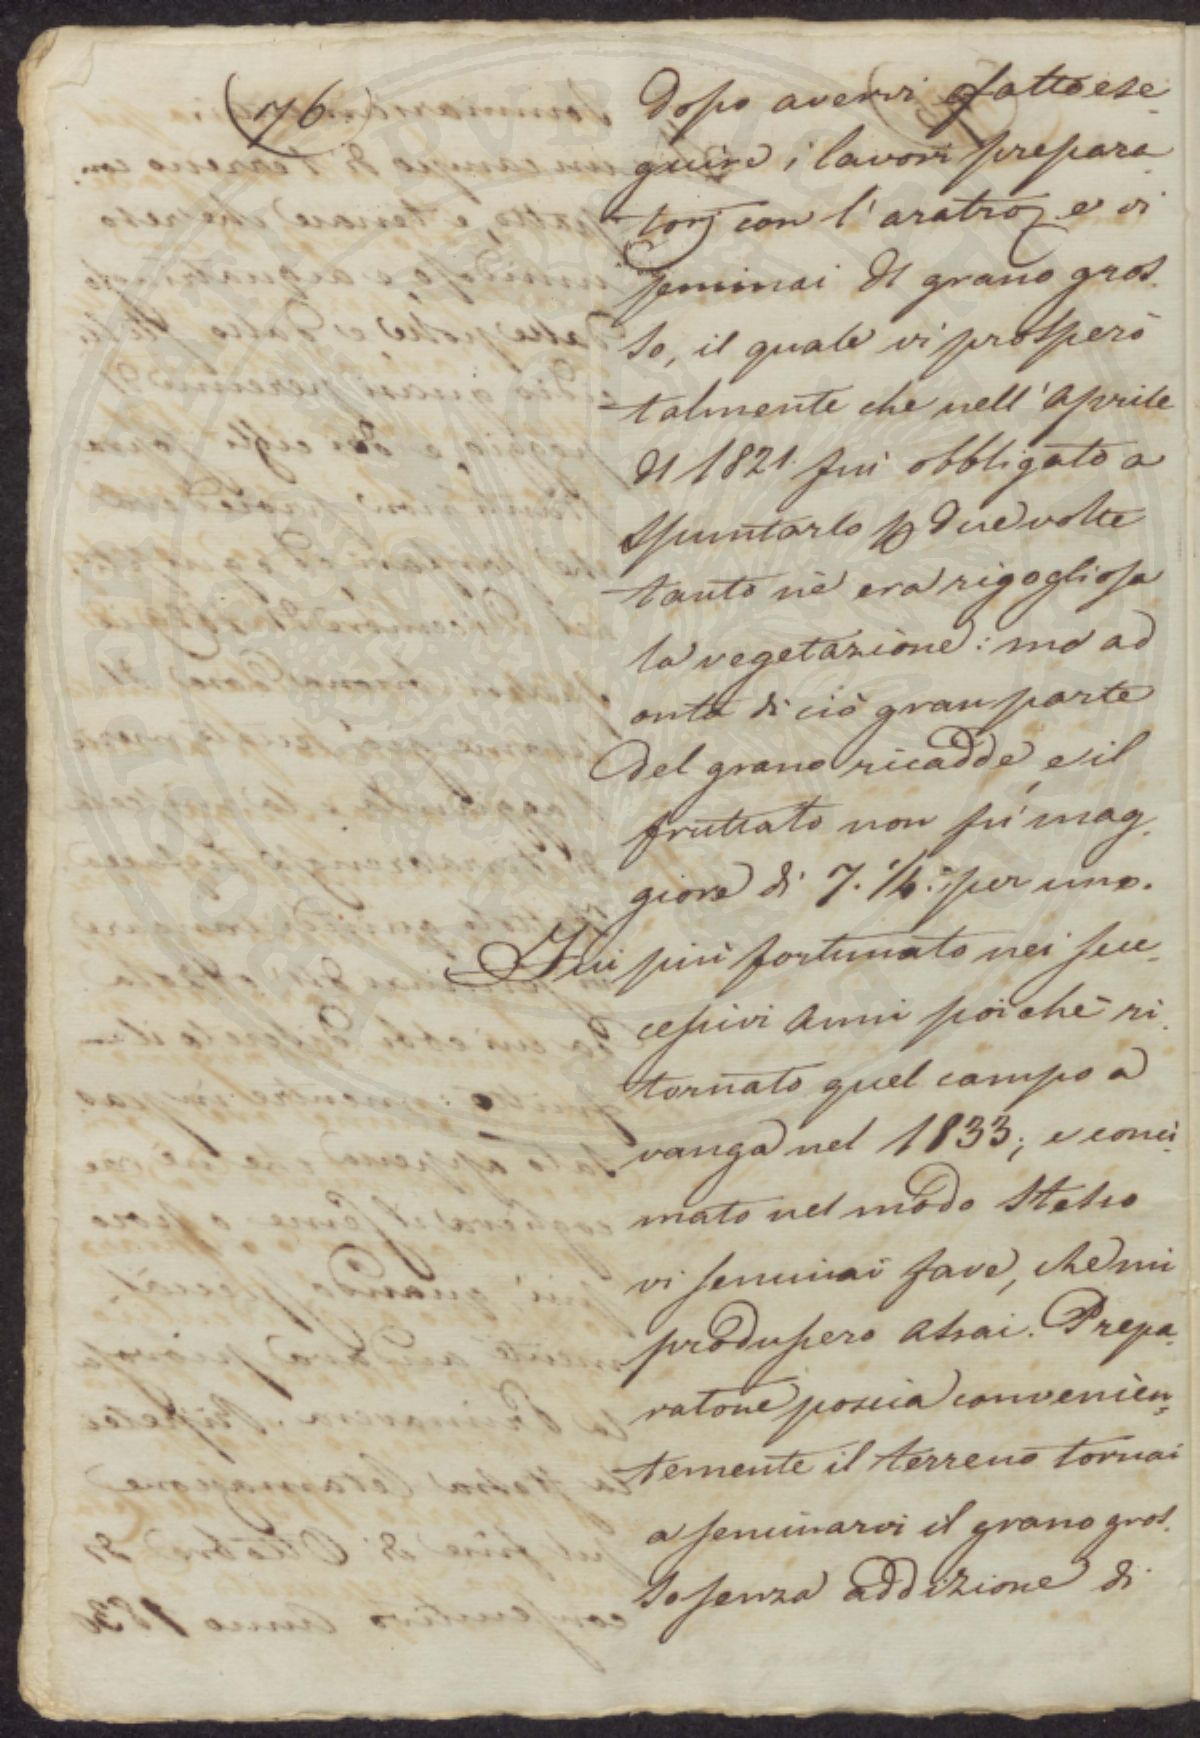 (76)
Dopo avervi fatto ese-
guire i lavori prepara-
torj con l'aratro, e vi
seminai dl grano gros-
so, il quale vi prosperò
talmente che nell'Aprile
dl 1821. fui obbligato a
spuntarlo p due volte
tanto nè era rigogliosa
la vegetazione: ma ad
onta di ciò gran parte
del grano ricadde, e il
fruttato non fù mag-
giore di 7. per uno.
Fui più fortunato nei suc-
cessivi Anni poichè ri-
tornato quel campo a
vanga nel 1833; e conci-
mato nel modo stesso
vi seminai fave, che mi
produssero assai. Prepa-
ratone poscia convenien-
temente il terreno tornai
a seminarvi il grano gros-
so senza addizione di